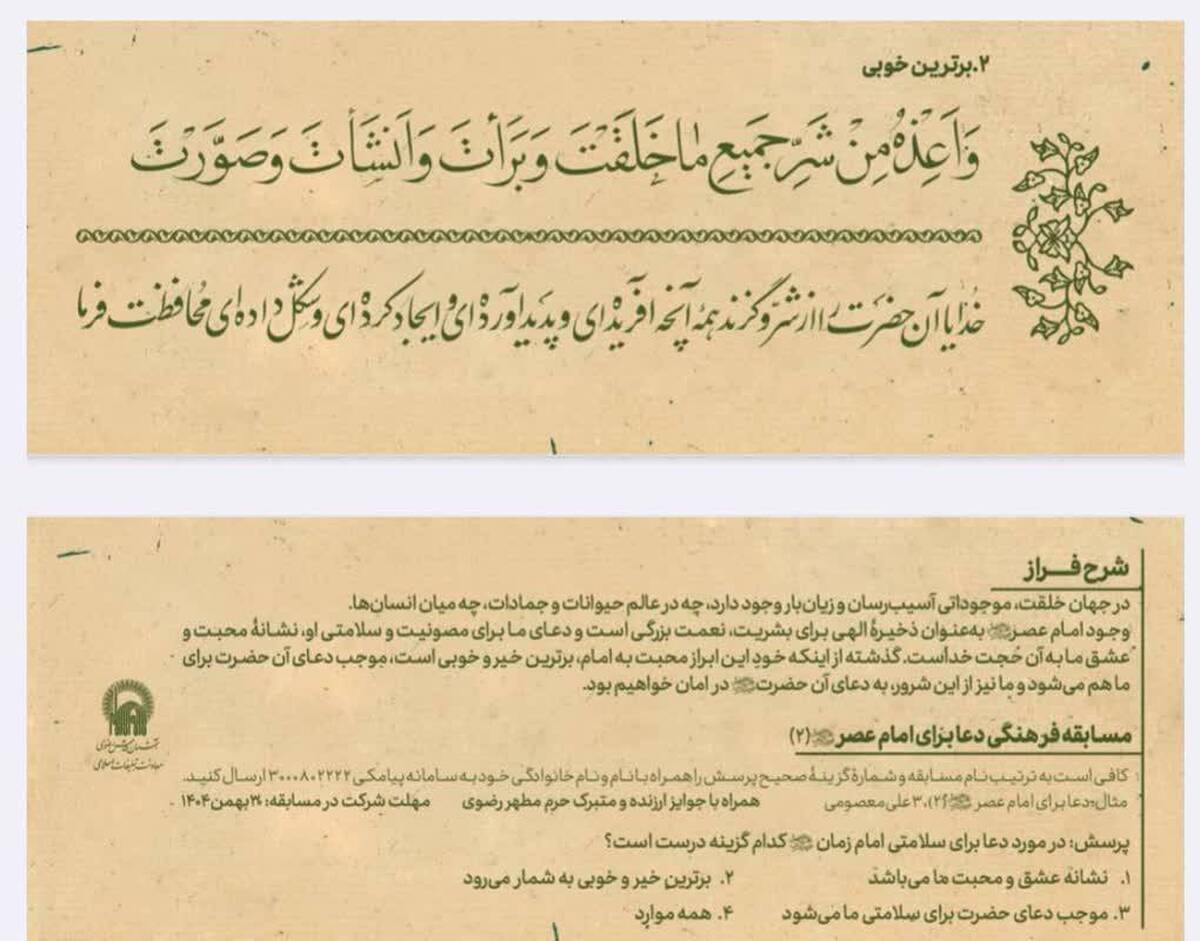 ۲.برترین خوبی
وَاَعِذْهُ مِنْ شَرِّ جَمیعِ مٰا خَلَقْتَ وَ بَرَأتَ وَ اَنشَأتَ وَ صَوَّرْتَ
خُدایا آن حضرَت را از شرّ و گزند همۀ آنچه افریده‌ای و پدید آورده‌ای و ایجاد کرده‌ای و شکل داده‌ای محافظت فرما
شرح فراز
در جهان خلقت، موجوداتی آسیب‌رسان و زیان‌بار وجود دارد، چه در عالم حیوانات و جمادات، چه میان انسان‌ها.
وجود امام عصر به‌عنوان ذخیرۀ الهی برای بشریت، نعمت بزرگی است و دعای ما برای مصونیت و سلامتی او، نشانۀ محبت و
عشق ما به آن حُجت خداست. گذشته از اینکه خودِ این ابراز محبت به امام، برترین خیر و خوبی است، موجب دعای آن حضرت برای
ما هم می‌شود و ما نیز از این شرور، به دعای آن حضرت در امان خواهیم بود.
مسابقه فرهنگی دعا برای امام عصر (۲)
کافی است به ترتیب نام مسابقه و شمارۀ گزینۀ صحیح پرسش را همراه با نام و نام خانوادگی خود به سامانه پیامکی ۳۰۰۰۸۰۲۲۲۲ ارسال کنید.
مثال: دعا برای امام عصر (۲)، ۳ علی معصومی همراه با جوایز ارزنده و متبرک حرم مطهر رضوی مهلت شرکت در مسابقه: بهمن ۱۴۰۴
پرسش: در مورد دعا برای سلامتی امام زمان کدام گزینه درست است؟
۱. نشانه عشق و محبت ما می‌باشد ۲. برترین خیر و خوبی به شمار می‌رود
۳. موجب دعای حضرت برای سلامتی ما می‌شود ۴. همه موارد
معاونت تبلیغات اسلامی